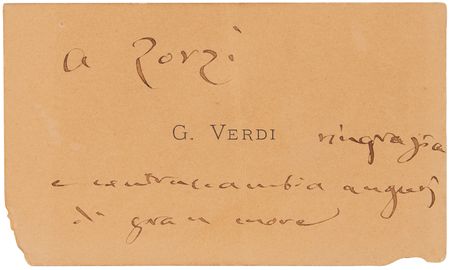 a Zorzi
G. VERDI ringrazia
e contraccambia augurj
di gran core